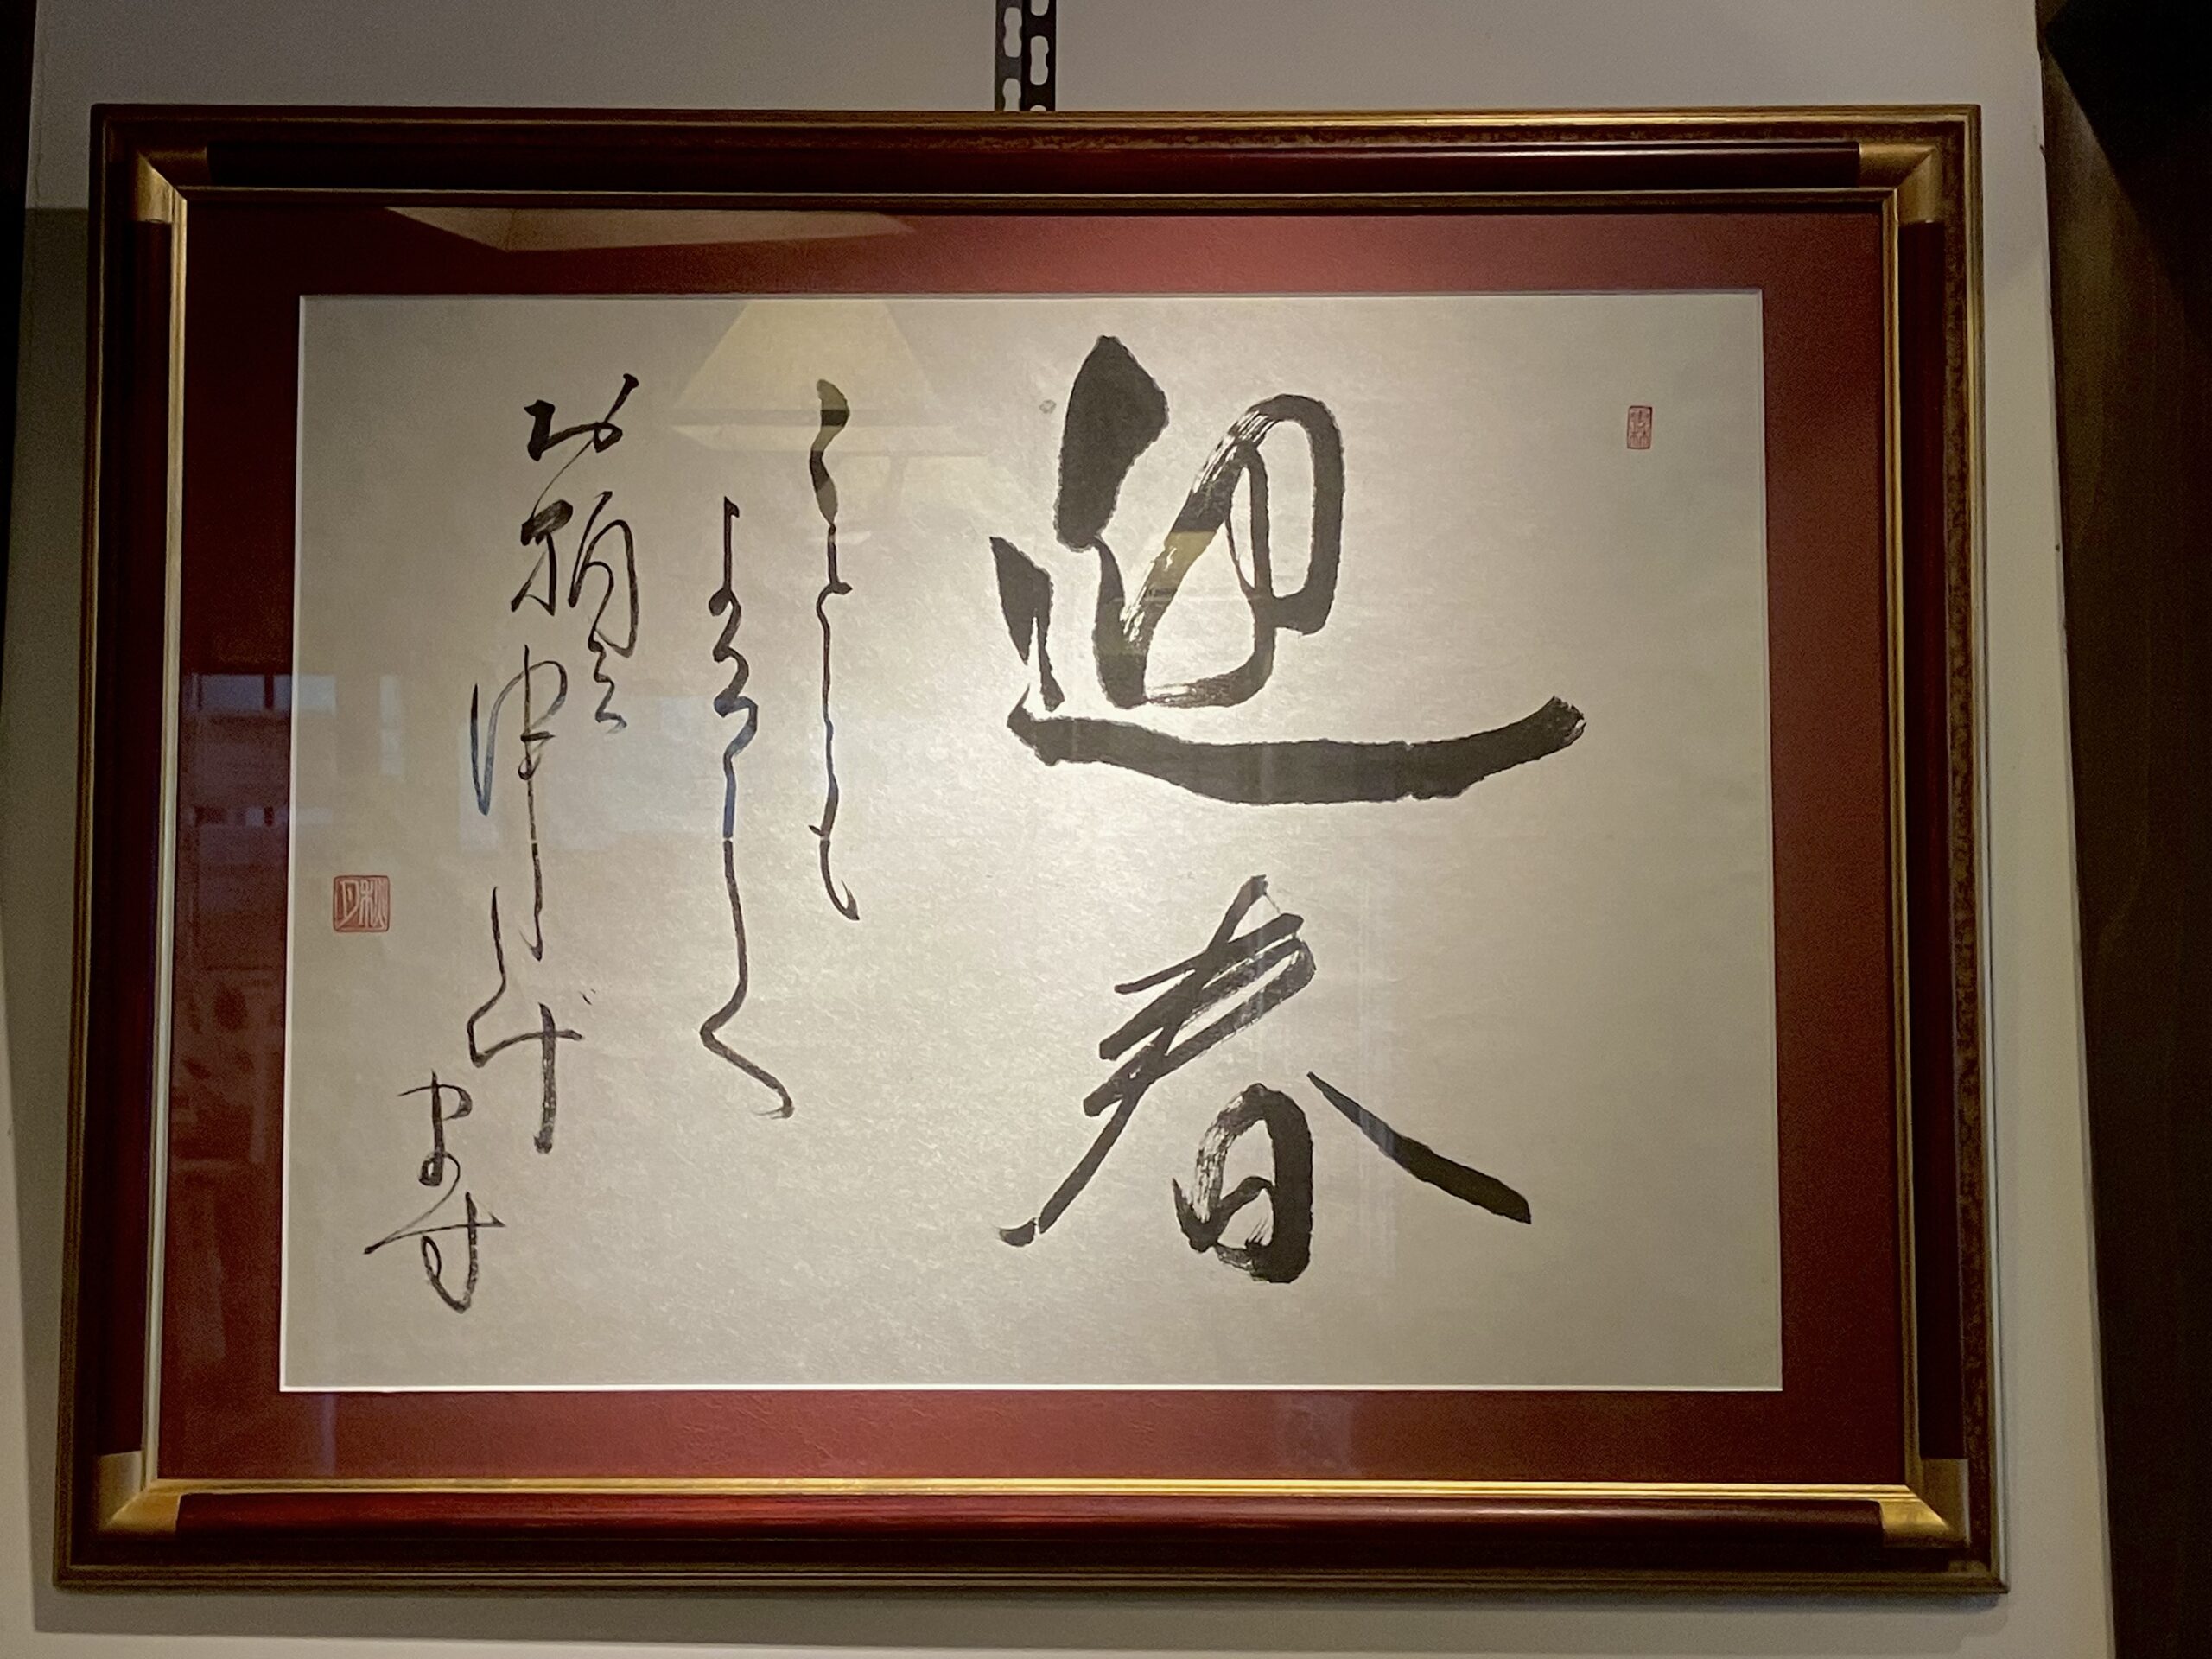 迎春
ことしも
よろしく
お願い申し上げ
ます